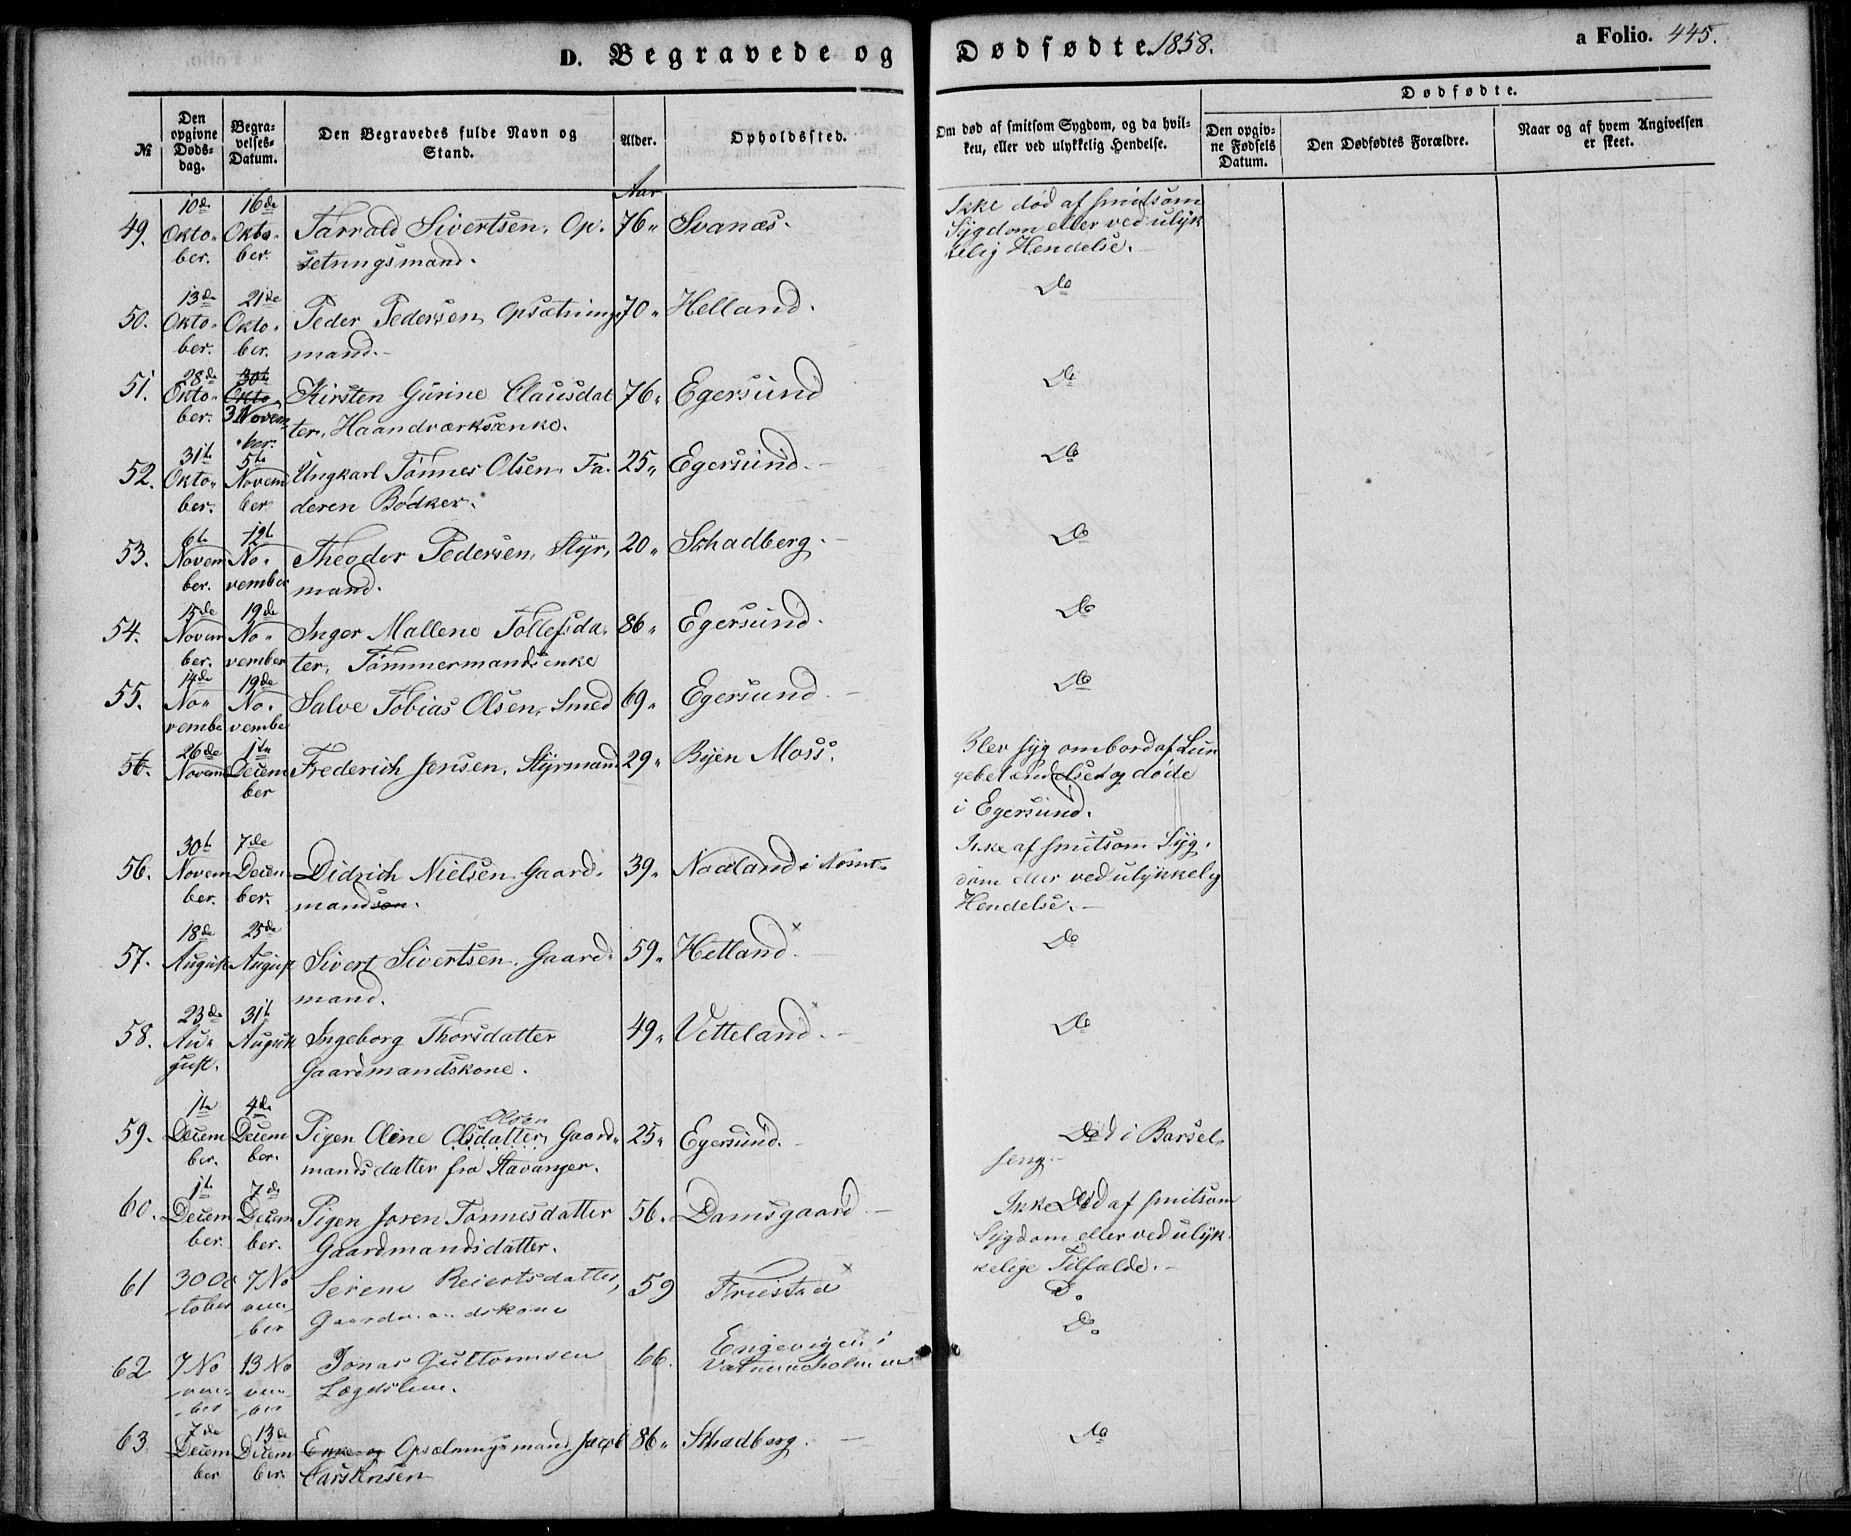 D. Begravede og Dødfødte 1858. a Folio. 445.
№
Den opgivne Døds-dag.
Begra-velses-Datum.
Den Begravedes fulde Navn og Stand.
Alder.
Opholdssted.
Om død af smitsom Sygdom, og da hvil-ken, eller ved ulykkelig Hendelse.
Dødfødte.
Den opgiv-ne Fødsels Datum.
Den Dødfødtes Forældre.
Naar og af hvem Angivelsen er skeet.
Aar
49. 10de Okto-ber. 16de Okto-ber. Tarrald Sivertsen, Op-sætningsmand. 76 Svanæs. Ikke død af smitsom Sygdom eller ved ulyk-kelig Hendelse.
50. 13de Okto-ber. 21de Okto-ber. Peder Pedersen Opsætnings-mand. 70 Helland. Do
51. 28de Okto-ber. 30te Okto 3 Novem-ber. Kirsten Gurine Clausdat-ter, Haandværksenke. 76 Egersund Do
52. 31te Okto-ber. 5te Novem-ber Ungkarl Tönnes Olsen, Fa-deren Bödker. 25 Egersund. Do
53. 6te Novem-ber. 12te No-vember Theodor Pedersen, Styr-mand. 20 Schadberg. Do
54. 15de Novem-ber. 19de No-vember Inger Mallene Tollefsda-ter, Tömmermandsenke 86 Egersund. Do
55. 14de No-vembe 19de No-vembe Salve Tobias Olsen, Smed 69 Egersund. Do
56. 26de Novemb 1te Decem-ber Frederich Jensen, Styrmand 29 Byen Moss. Blev syg ombord af Lun-gebetændelse og døde i Egersund.
56. 30te Novem-ber. 7de Decem-ber. Didrich Nielsen Gaard-mandsön. 39 Naaland i Ikke af smitsom Syg-dom eller ved ulykkelig Hendelse.
57. 18de August 25de August Sivert Sivertsen, Gaard-mand. 59 Hetland. × Do
58. 23de Au-gust. 31te August Ingeborg Thorsdatter Gaardmandskone. 49 Vetteland. × Do
59. 1te Decem-ber. 4de Decem-ber. Pigen Oline Olsdatter, Olsen Gaard-mandsdatter fra Stavanger. 25 Egersund. Död i Barsel-seng.
60. 1te Decem-ber. 7de Decem-ber. Pigen Joren Tönnesdatter Gaardmandsdatter. 56. Damsgaard Ikke Död af smitsom Sygdom eller ved ulyk-kelige Tilfælde.
61 30 Oc-tober 7 No-vem-ber Serene Reiertsdatter, Gaardmandskone 59 Friestad × Do
62 7 No-vem-ber 13 No-vem-ber Jonas Guttormsen Lægdslem. 66. Engevigen i Do
63 7de Decem-ber 13de Decem-ber. Enke og Opsætningsmand Jacob Carstensen 86 Schadberg. Do